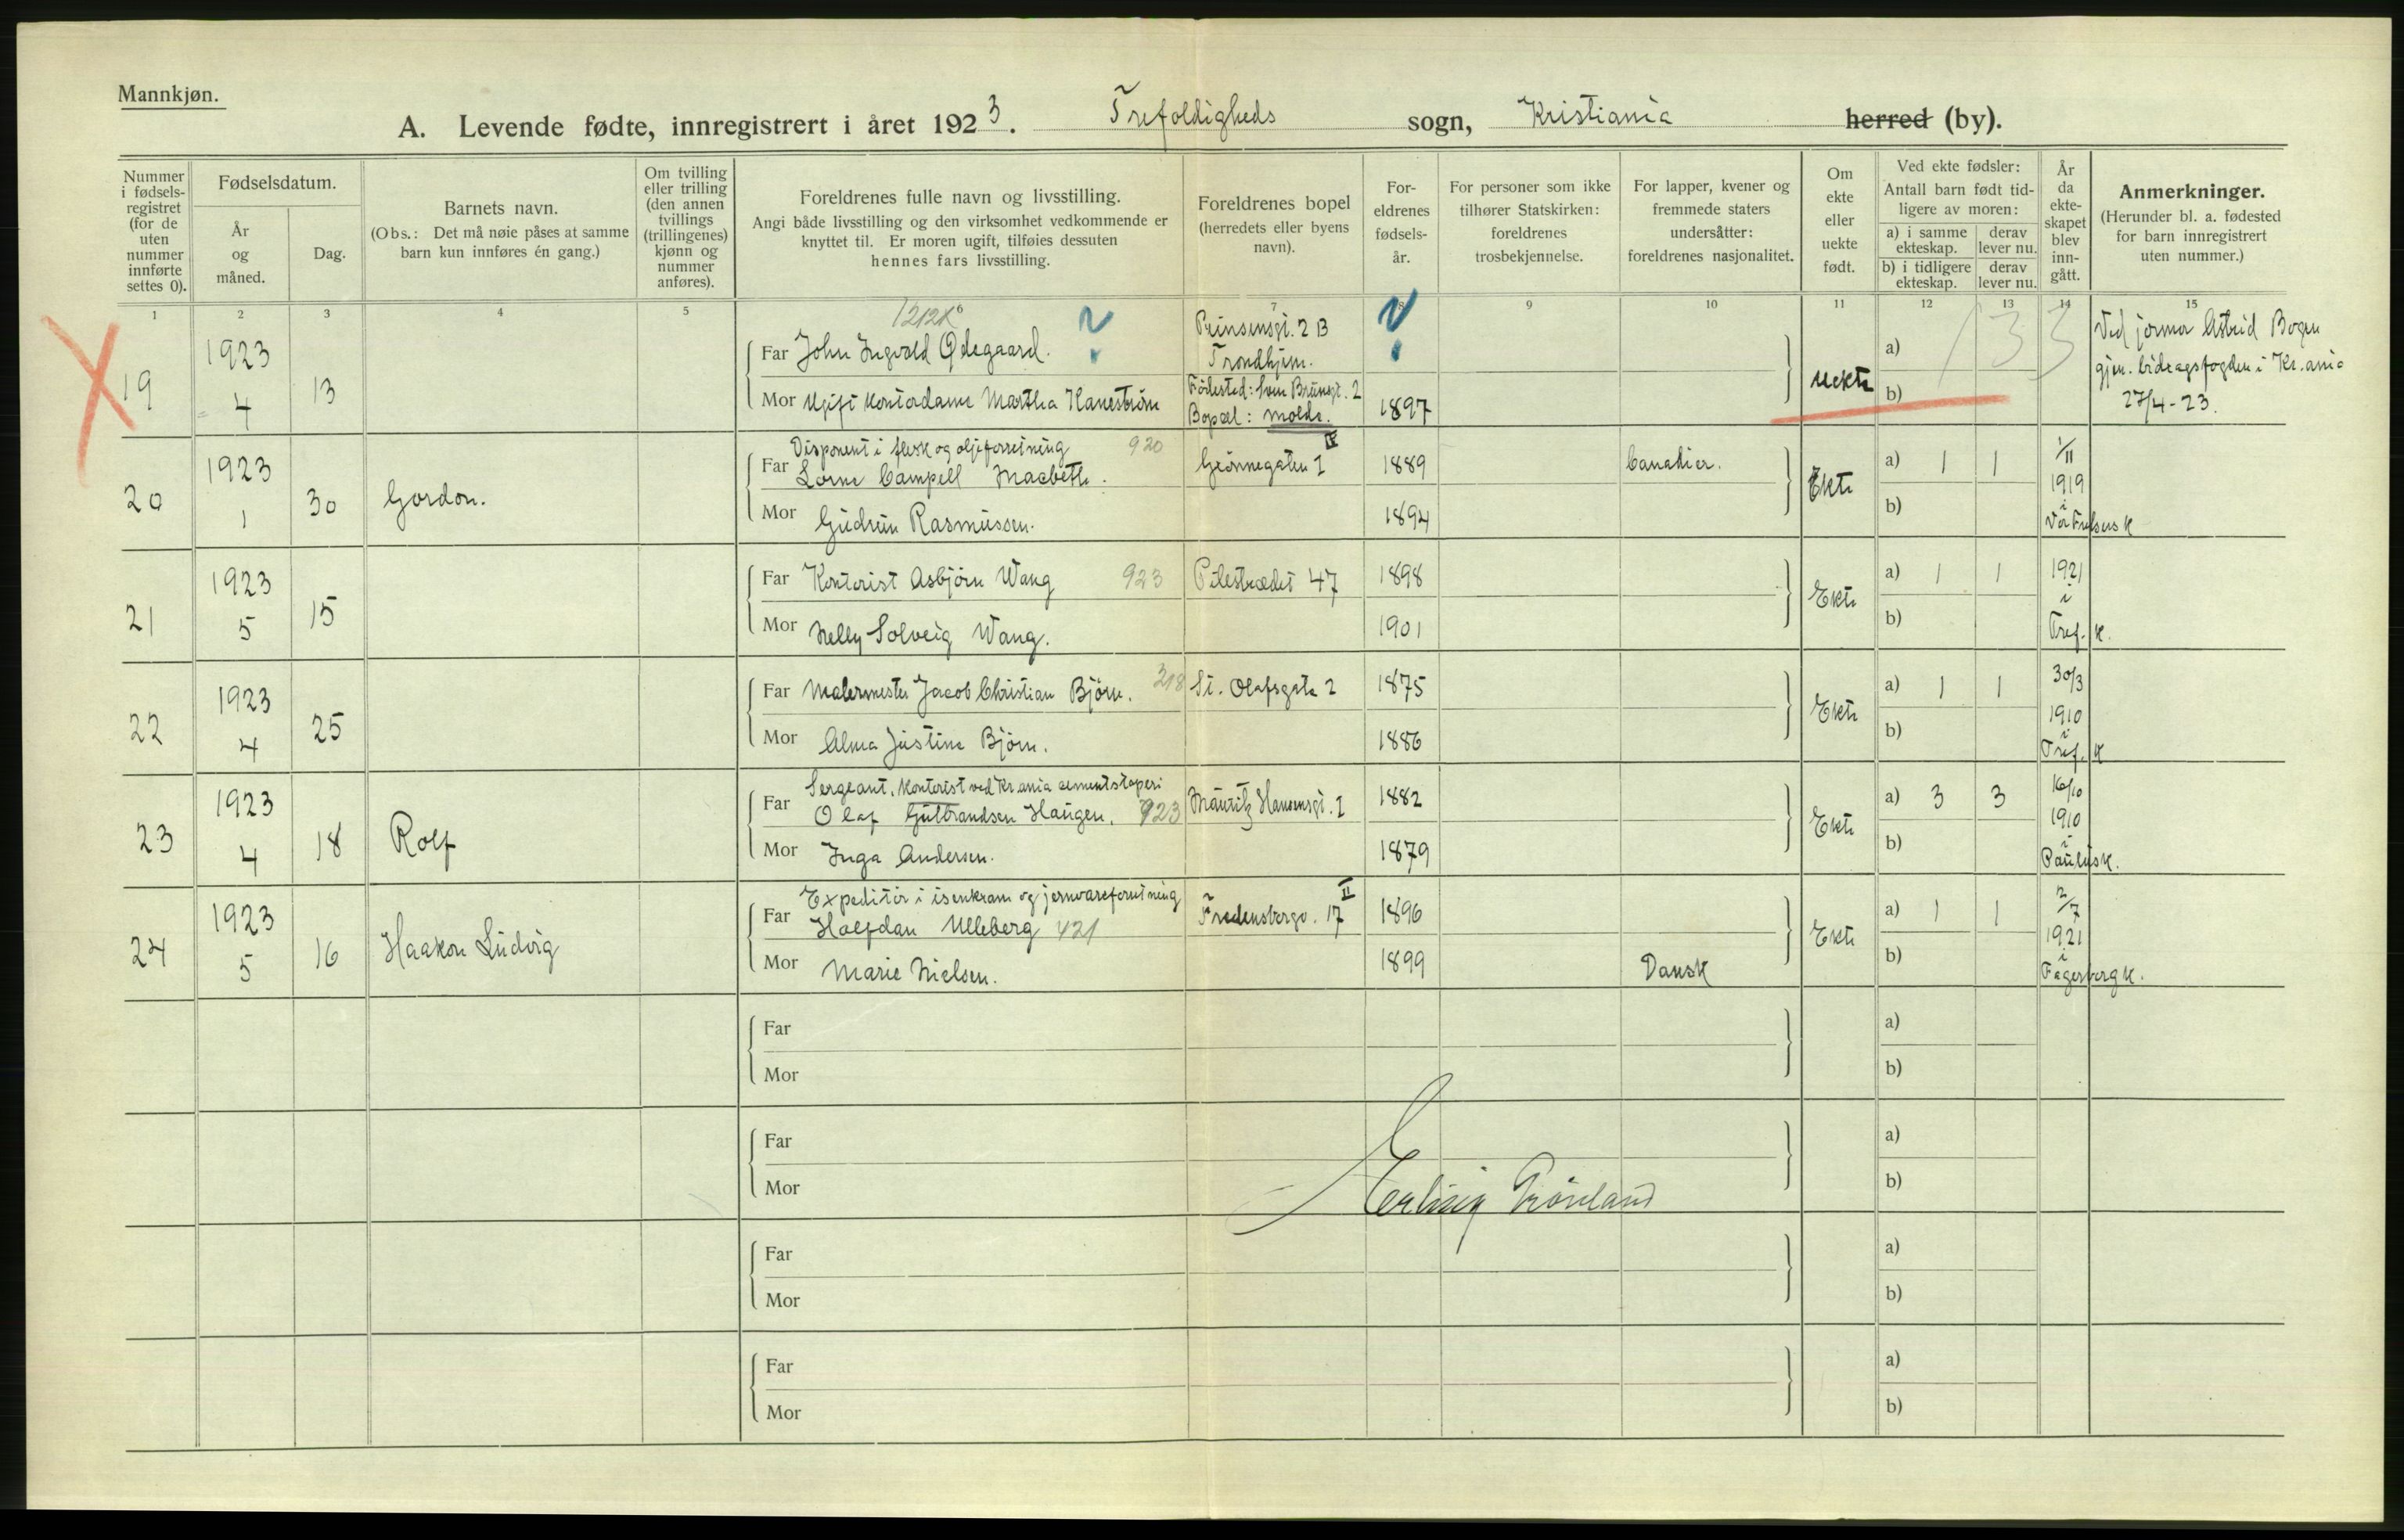 Mannkjøn.
A. Levende fødte, innregistrert i året 1923. Trefoldigheds sogn, Kristiania herred (by).
Nummer i fødsels-registret (for de uten nummer innførte settes 0).
Fødselsdatum.
År og måned.
Dag.
Barnets navn.
(Obs.: Det må nøie påses at samme barn kun innføres én gang.)
Om tvilling eller trilling (den annen tvillings (trillingenes) kjønn og nummer anføres).
Foreldrenes fulle navn og livsstilling.
Angi både livsstilling og den virksomhet vedkommende er knyttet til. Er moren ugift, tilføies dessuten hennes fars livsstilling.
Foreldrenes bopel (herredets eller byens navn).
For-eldrenes fødsels-år.
For personer som ikke tilhører Statskirken: foreldrenes trosbekjennelse.
For lapper, kvener og fremmede staters undersåtter: foreldrenes nasjonalitet.
Om ekte eller uekte født.
Ved ekte fødsler:
Antall barn født tid-ligere av moren:
a) i samme ekteskap.
derav lever nu.
b) i tidligere ekteskap.
derav lever nu.
År da ekte-skapet blev inn-gått.
Anmerkninger.
(Herunder bl. a. fødested for barn innregistrert uten nummer.)
1 2 3 4 5 7 9 10 11 12 13 14 15
X 19
1923 4
13
Far John Ingvald Ødegaard. ?
Mor Ugift kontordame Martha Hanestrøm
Prinsensgt. 2 B
Trondhjem.
Födested: Sven Brunsgt. 2
Bopæl: Molde.
?
1897
uekte
a)
b)
133
Ved jormor Astrid Bogen
gjen. bidragsfogden i Kr.ania
27/4-23.
20
1923 1
30
Gordon.
Disponent i flesk og oljeforretning 920
Far Lorne Campell Macbeth.
Mor Gudrun Rasmussen.
Grönnegaten 1 IV
1889
1894
Canadier.
Ekte
a) 1 1
b)
1/11 1919 i Vor Frelsers k
21
1923 5
15
Far Kontorist Asbjörn Wang 923
Mor Nelly Solveig Wang.
Pilestrædet 47
1898
1901
Ekte
a) 1 1
b)
1921 i Tref. k.
22
1923 4
25
Far Malermester Jacob Christian Björn. 318
Mor Alma Justine Björn.
St. Olafsgate 2
1875
1886
Ekte
a) 1 1
b)
30/3 1910 i Tref. k
23
1923 4
18
Rolf
Sergeant, kontorist ved Kr.ania cementstøperi
Far Olaf Gulbrandsen Haugen. 923
Mor Inga Andersen.
Mauritz Hansensgt. 1
1882
1879
Ekte
a) 3 3
b)
16/10 1910 i Paulusk.
24
1923 5
16
Haakon Ludvig
Expeditör i isenkram og jernvareforretning
Far Halfdan Ulleberg 421
Mor Marie Nielsen.
Fredensborgv. 17 II
1896
1899
Dansk
Ekte
a) 1 1
b)
2/7 1921 i Fagerborg k.
Far
Mor
a)
b)
Far
Mor
a)
b)
Erling Grönland
Far
Mor
a)
b)
Far
Mor
a)
b)